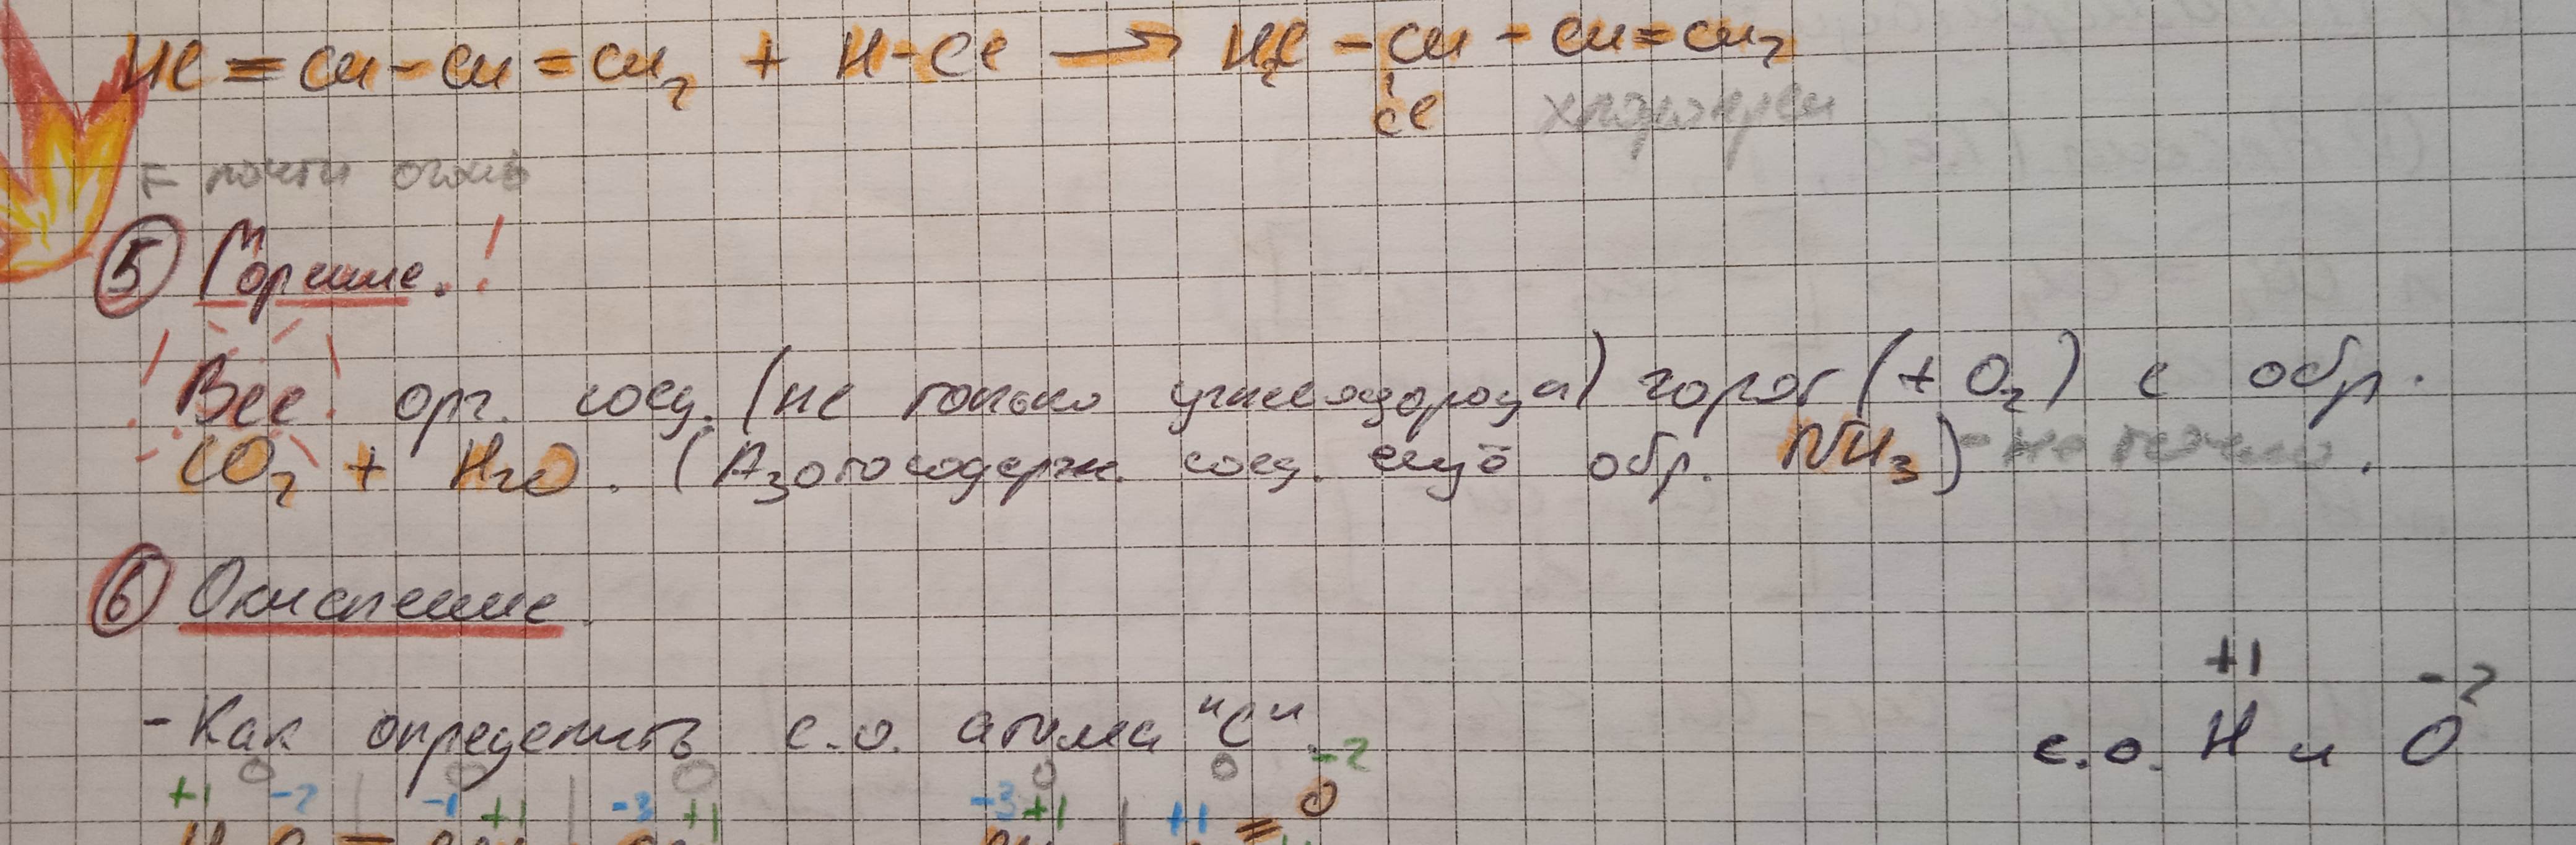 HC = CH - CH = CH₂ + H-Cl → H₂C - CH - CH = CH₂
Cl хлоропрен
F почти огонь
5 Горение.!
! Все! орг. соед. (не только углеводорода) горят (+ O₂) с обр.
CO₂ + H₂O. (Азотосодерж. соед. ещё обр. NH₃)
6 Окисление.
+1 -2
- Как определить с.о. атома "C". с.о. H и O
0 0 0 0 0 -2
+1 -2 | -1 +1 | -3 +1 -3 +1 | +1 = O